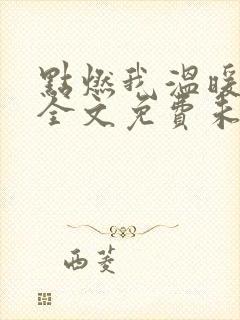 點燃我溫暖
全文免費未
西菱